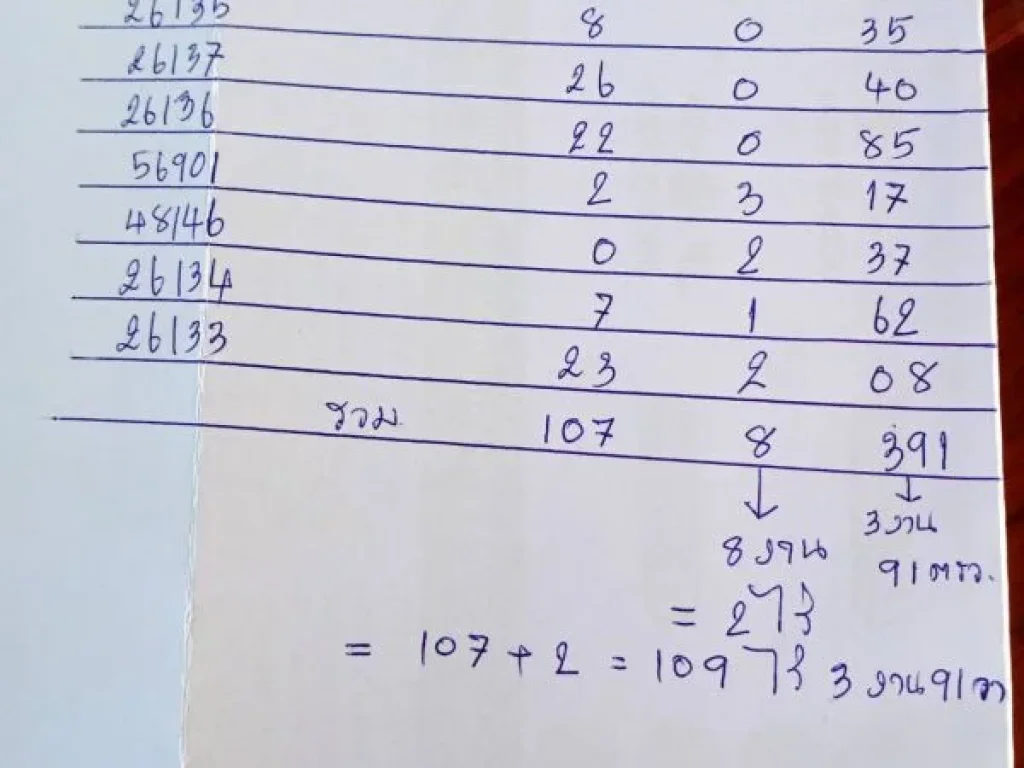 26135 8 0 35
26137 26 0 40
26136 22 0 85
56901 2 3 17
48146 0 2 37
26134 7 1 62
26133 23 2 08
รวม 107 8 391
8 งาน 3 งาน
91 ตรว.
= 2 ไร่
= 107 + 2 = 109 ไร่ 3 งาน 91 วา